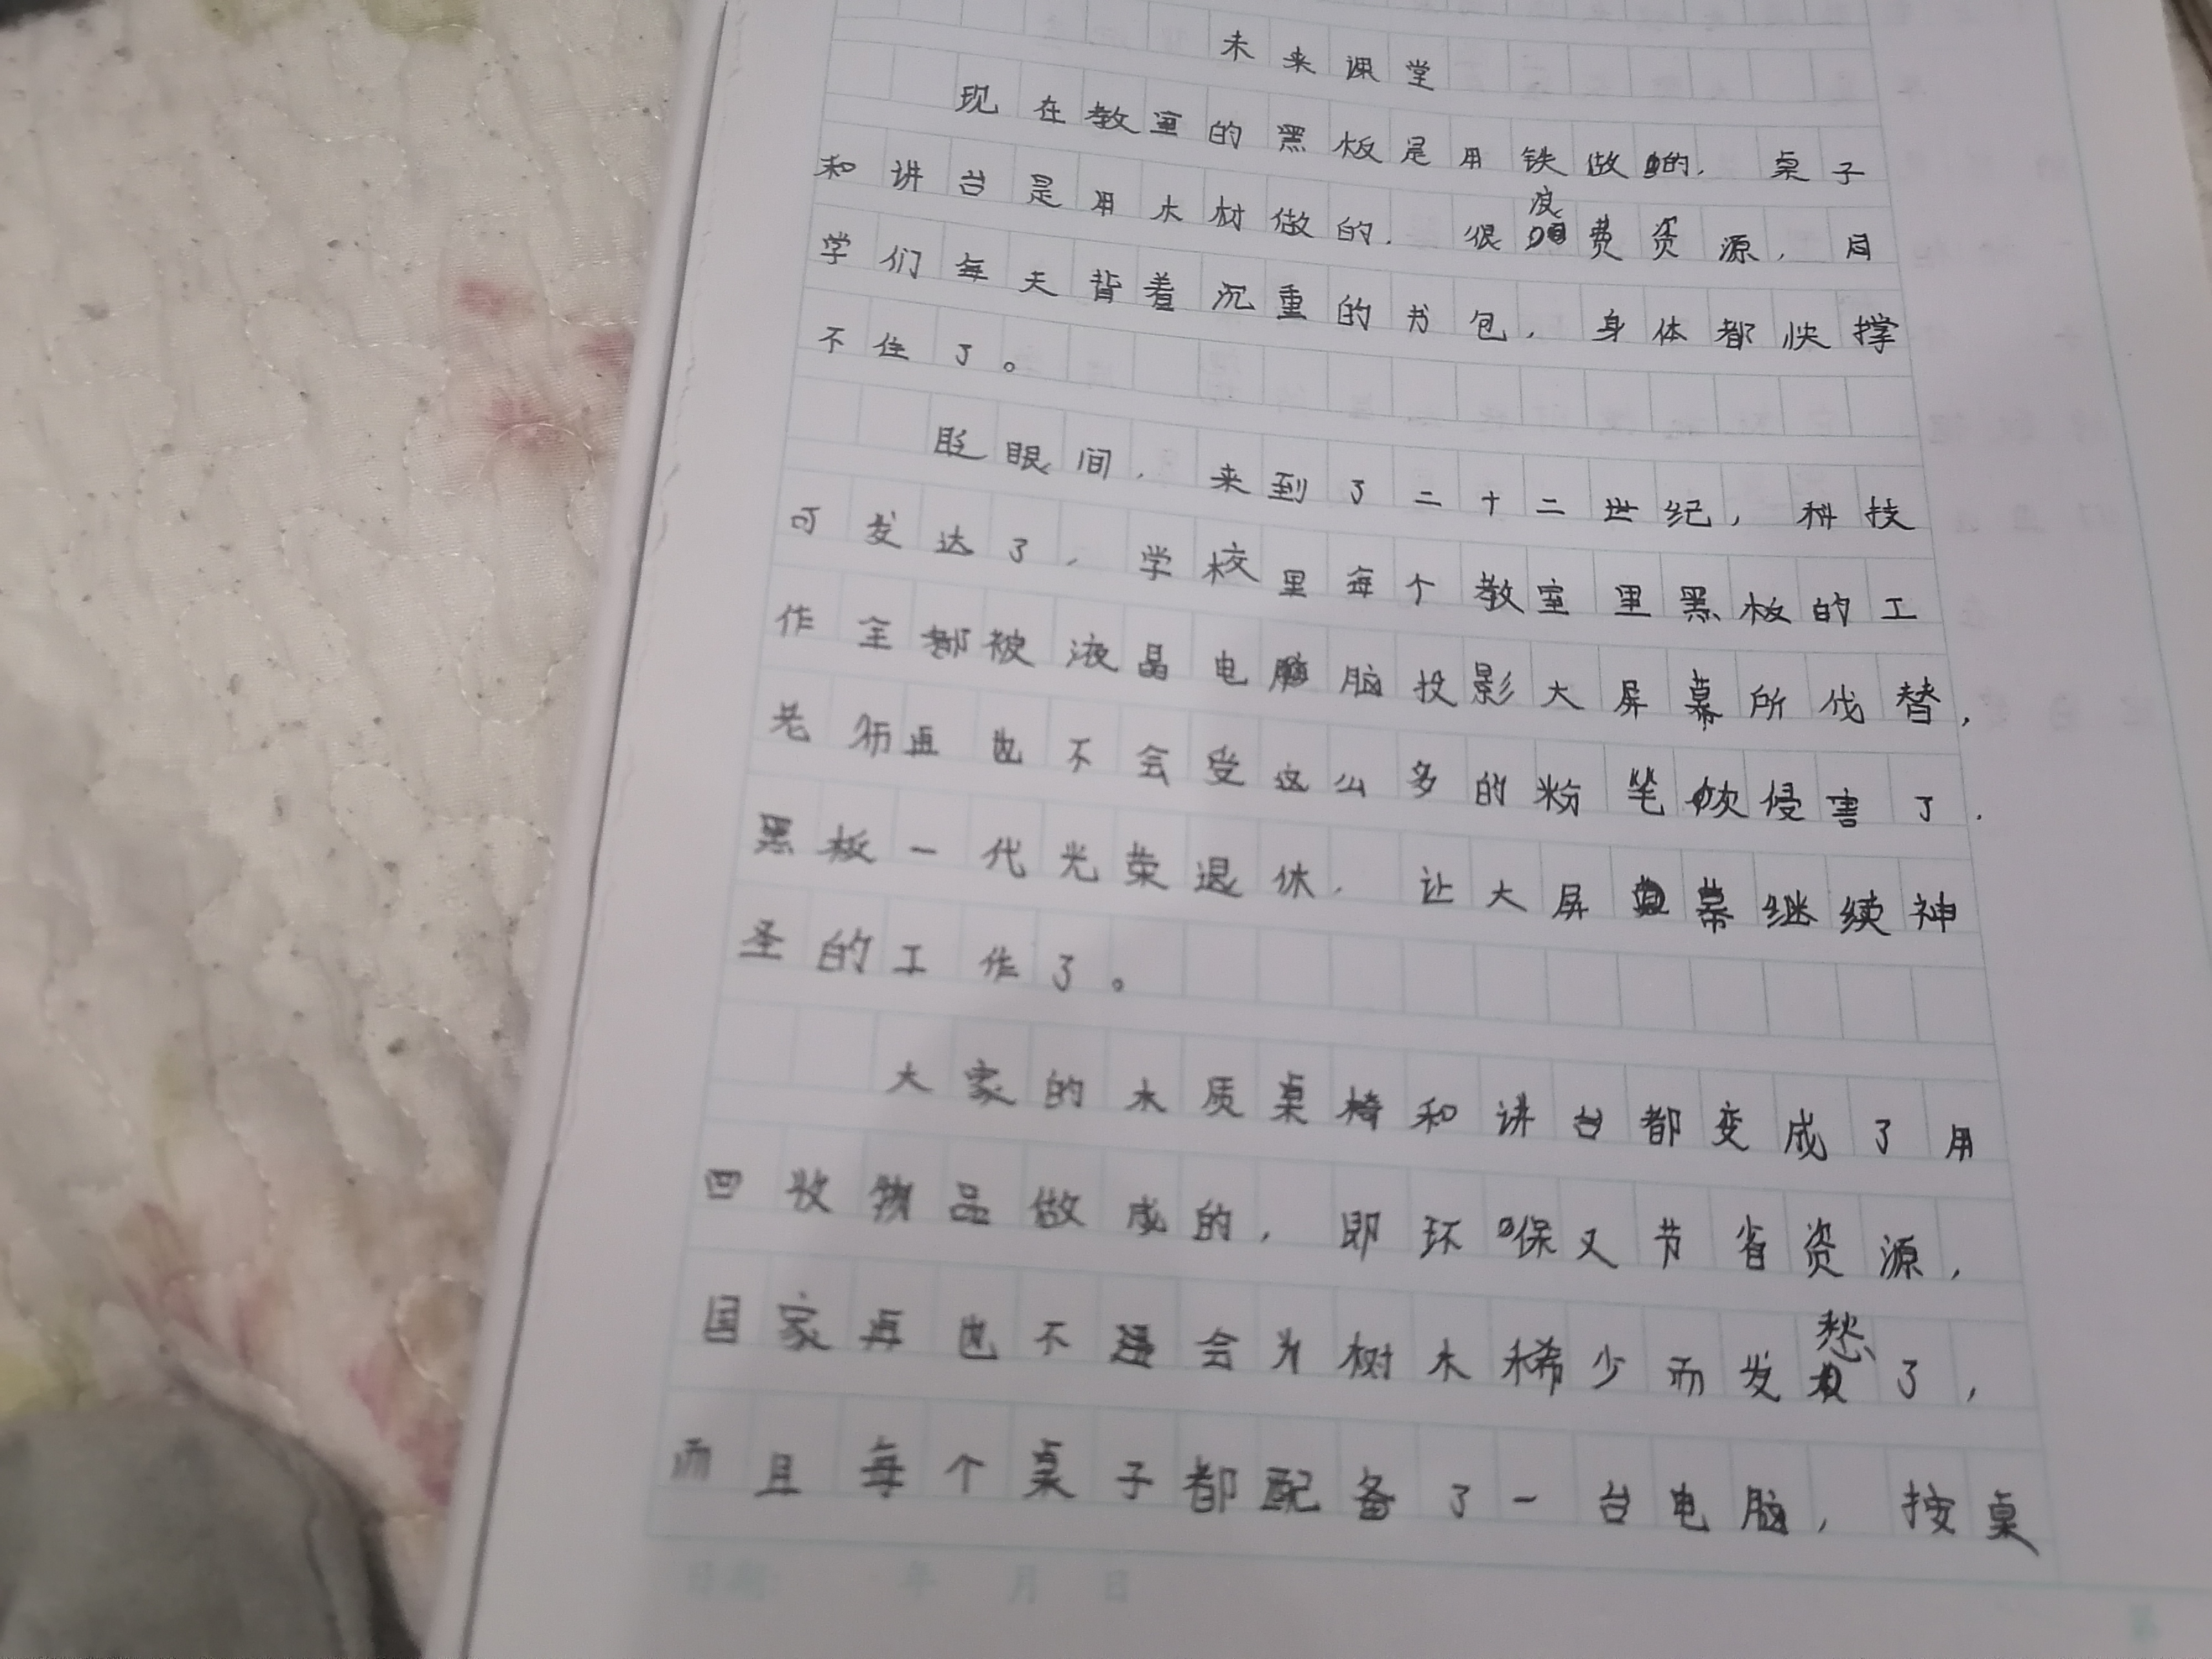 未来课堂
现在教室的黑板是用铁做的，桌子
和讲台是用木材做的，很浪费资源，同
学们每天背着沉重的书包，身体都快撑
不住了。
眨眼间，来到了二十二世纪，科技
可发达了，学校里每个教室里黑板的工
作全都被液晶电脑投影大屏幕所代替，
老师再也不会受这么多的粉笔吹侵害了，
黑板一代光荣退休，让大屏幕继续神
圣的工作了。
大家的木质桌椅和讲台都变成了用
回收物品做成的，即环保又节省资源，
国家再也不会为树木稀少而发愁了，
而且每个桌子都配备了一台电脑，按桌
日期： 年 月 日
第